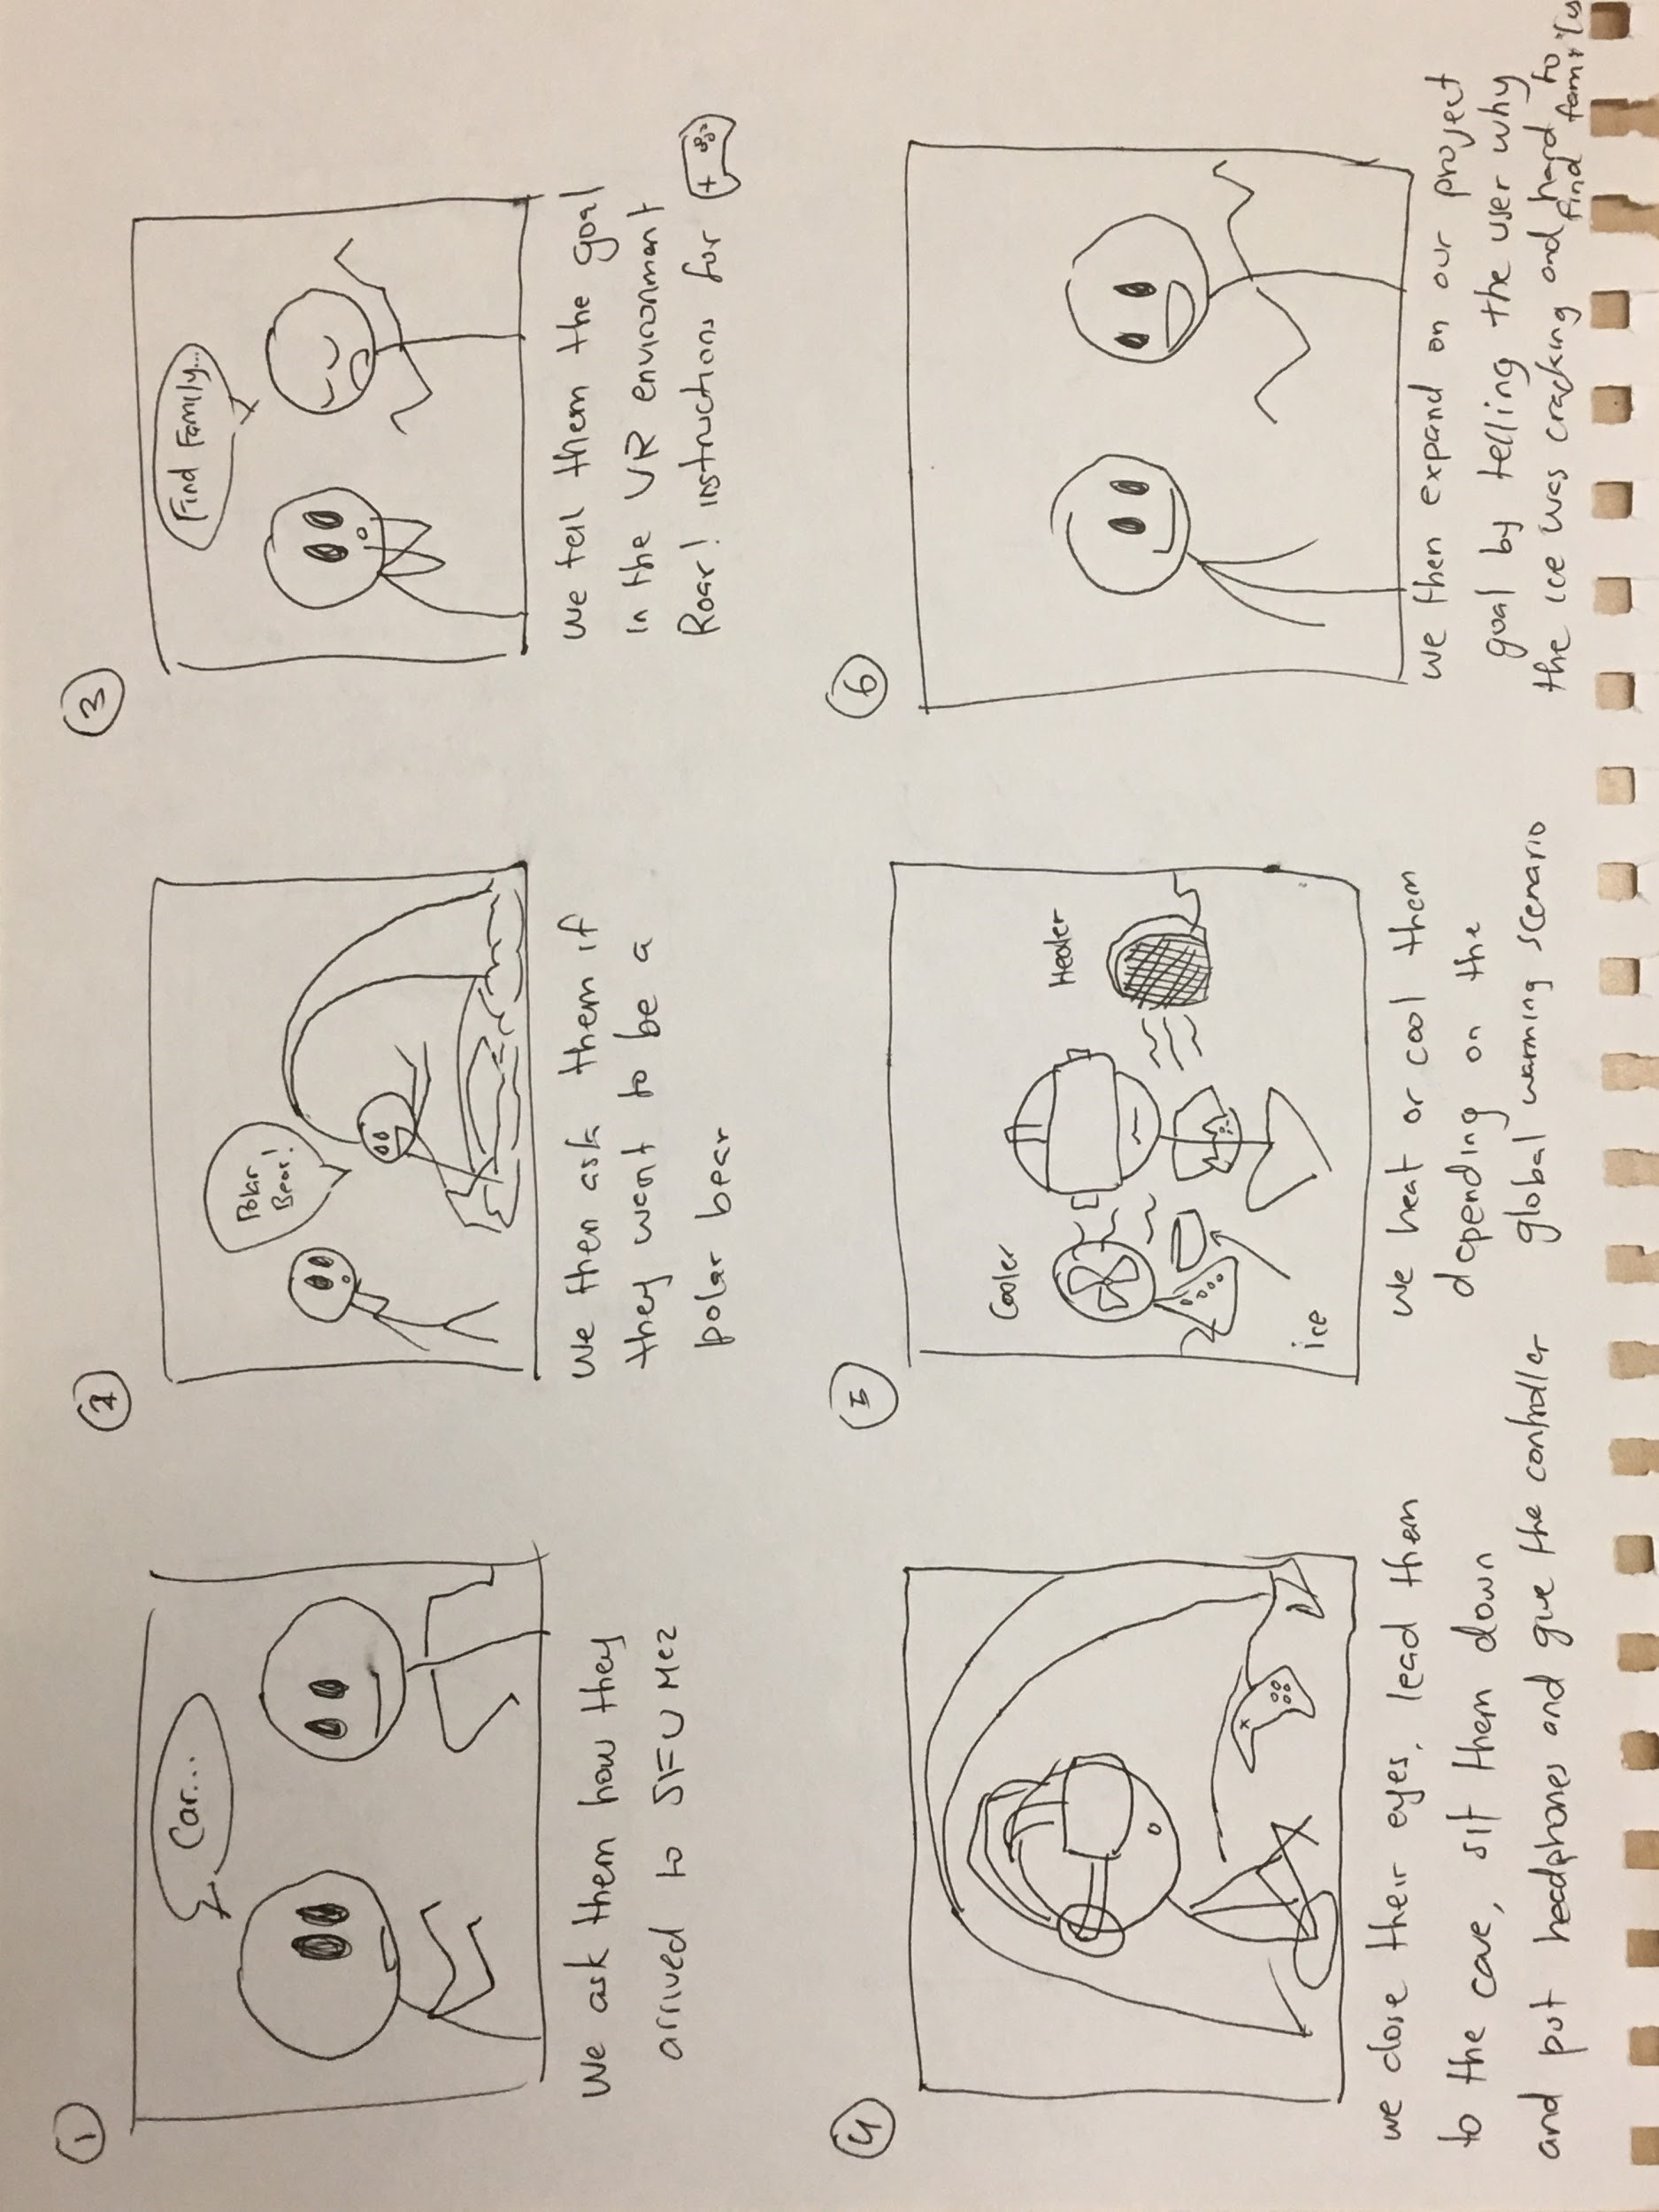 1
Car...
We ask them how they
arrived to SFU Mez
2
Polar
Bear!
We then ask them if
they want to be a
polar bear
3
Find Family...
We tell them the goal
in the VR environment
Roar! instructions for
4
we close their eyes, lead them
to the cave, sit them down
and put headphones and give the controller
5
Cooler
Heater
ice
we heat or cool them
depending on the
global warming scenario
6
we then expand on our project
goal by telling the user why
the ice was cracking and hard to
find family